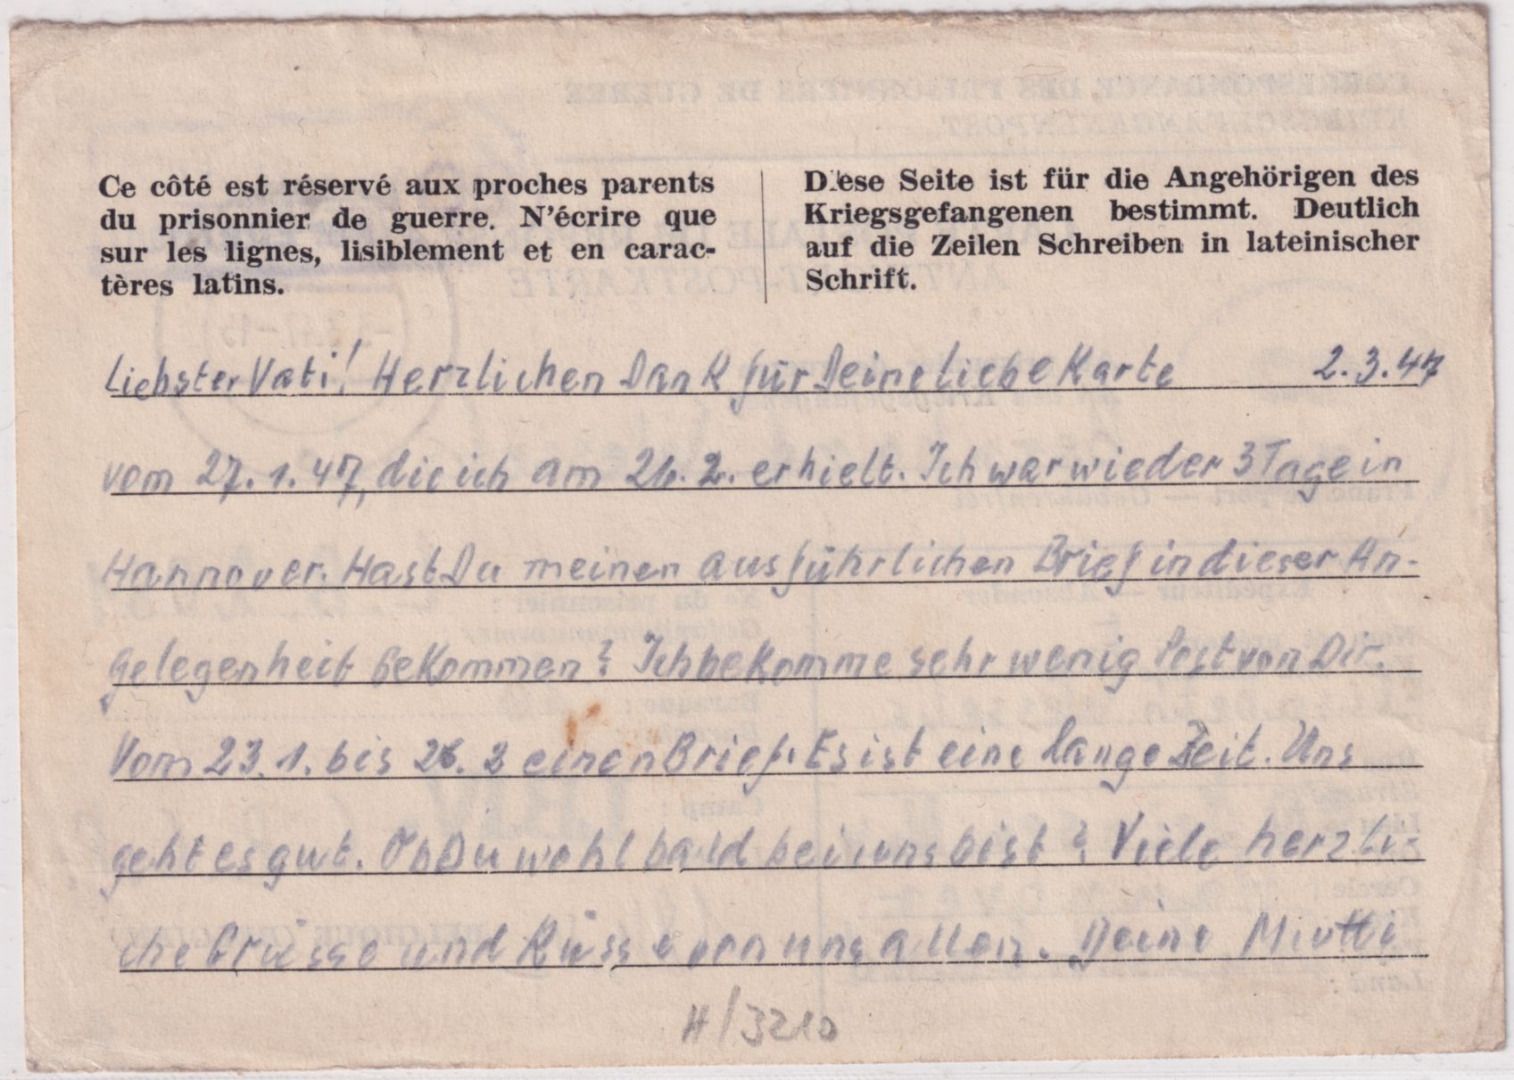 Ce côté est réservé aux proches parents
du prisonnier de guerre. N'écrire que
sur les lignes, lisiblement et en carac-
tères latins.
Diese Seite ist für die Angehörigen des
Kriegsgefangenen bestimmt. Deutlich
auf die Zeilen Schreiben in lateinischer
Schrift.
Liebster Vati! Herzlichen Dank für Deine liebe Karte 2.3.47
vom 27.1.47, die ich am 26.2. erhielt. Ich war wieder 3 Tage in
Hannover. Hast Du meinen ausführlichen Brief in dieser An-
gelegenheit bekommen? Ich bekomme sehr wenig Post von Dir.
Vom 23.1. bis 26.2 einen Brief. Es ist eine lange Zeit. Uns
geht es gut. Ob Du wohl bald bei uns bist? Viele herzli-
che Grüsse und Küsse von uns allen. Deine Mutti
H/3210